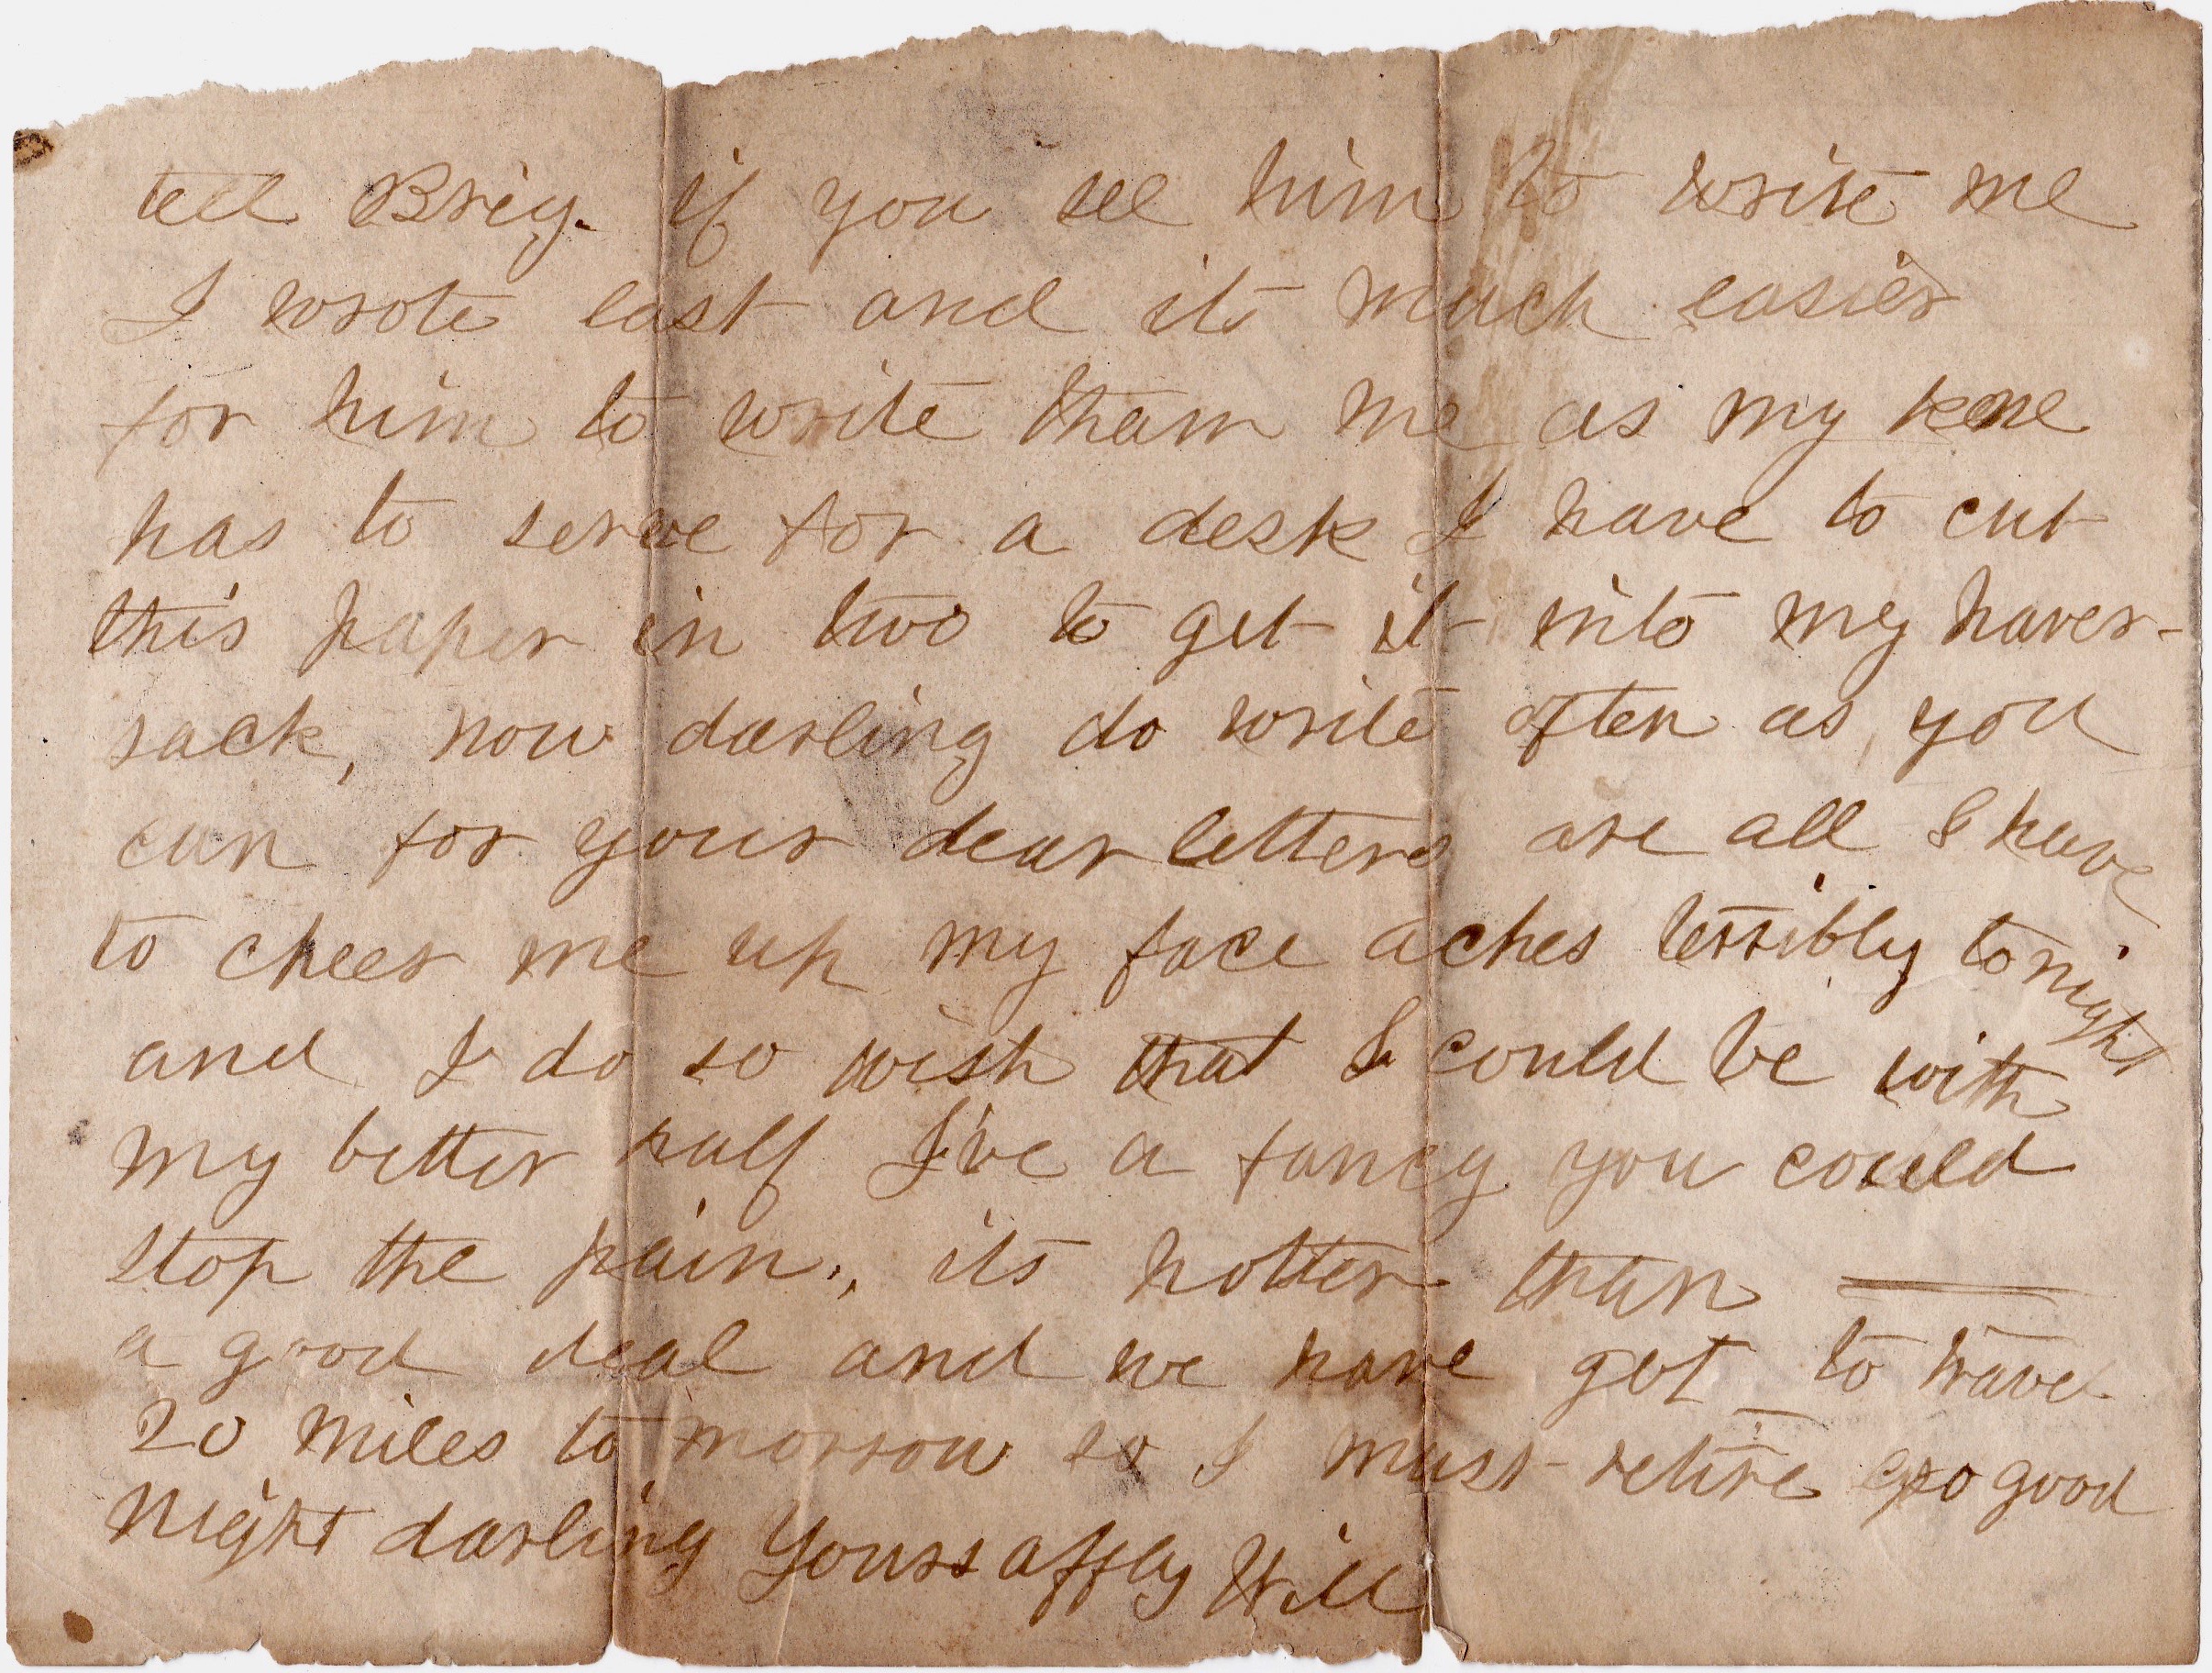 tell Brig. if you see him to write me
I wrote last and its much easier
for him to write than me as my knee
has to serve for a desk I have to cut
this paper in two to get it into my haver-
sack, now darling do write often as you
can for your dear letters are all I have
to cheer me up my face aches terribly tonight
and I do so wish that I could be with
my better half I've a fancy you could
stop the pain., its hotter than ——
a good deal and we have got to travel
20 miles to morrow so I must retire so good
night darling Yours affly Will